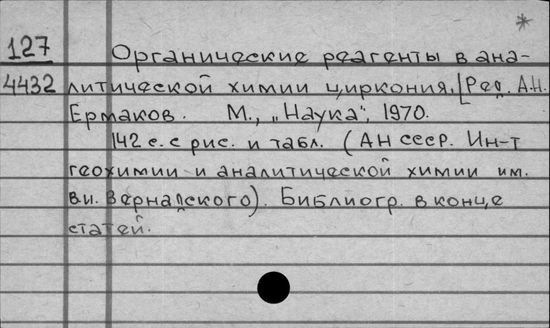 *
127 Органические реагенты в ана-
4432 литической химии циркония. [Ред. А.Н.
Ермаков. М., „Наука", 1970.
142 с. с рис. и табл. (АН СССР. Ин-т
геохимии и аналитической химии им.
В.И. Вернадского). Библиогр. в конце
статей.